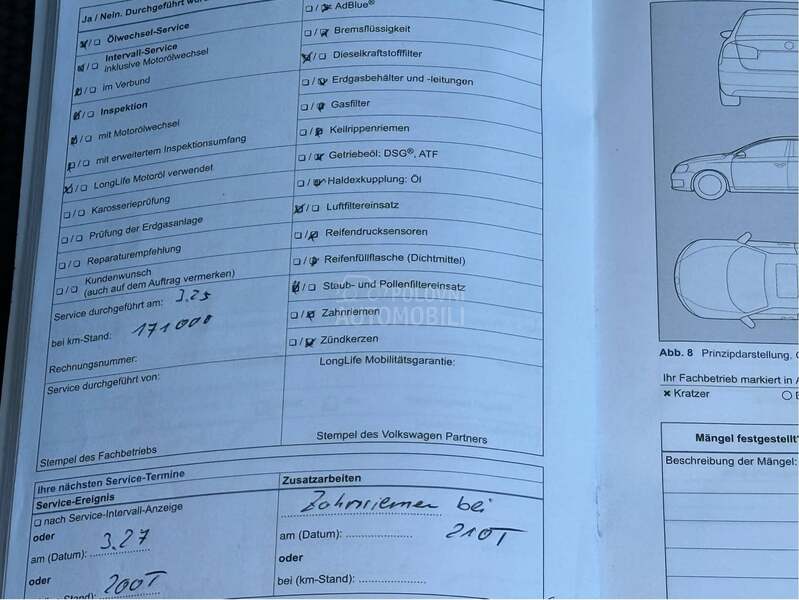 Ja / Nein. Durchgeführt
Ölwechsel-Service
Intervall-Service
inklusive Motorölwechsel
im Verbund
Inspektion
mit Motorölwechsel
mit erweitertem Inspektionsumfang
LongLife Motoröl verwendet
Karosserieprüfung
Prüfung der Erdgasanlage
Reparaturempfehlung
Kundenwunsch
(auch auf dem Auftrag vermerken)
Service durchgeführt am: 3.25
bei km-Stand: 171000
Rechnungsnummer:
Service durchgeführt von:
Stempel des Fachbetriebs
AdBlue®
Bremsflüssigkeit
Dieselkraftstofffilter
Erdgasbehälter und -leitungen
Gasfilter
Keilrippenriemen
Getriebeöl: DSG®, ATF
Haldexkupplung: Öl
Luftfiltereinsatz
Reifendrucksensoren
Reifenfüllflasche (Dichtmittel)
Staub- und Pollenfiltereinsatz
Zahnriemen
Zündkerzen
LongLife Mobilitätsgarantie:
Stempel des Volkswagen Partners
POLOVNI
AUTOMOBILI
Ihre nächsten Service-Termine
Service-Ereignis
nach Service-Intervall-Anzeige
oder
am (Datum): 3.27
oder
200T
Zusatzarbeiten
Zahnriemen bei
am (Datum): 210T
oder
bei (km-Stand):
Abb. 8 Prinzipdarstellung.
Ihr Fachbetrieb markiert in
Kratzer
Mängel festgestellt
Beschreibung der Mängel: